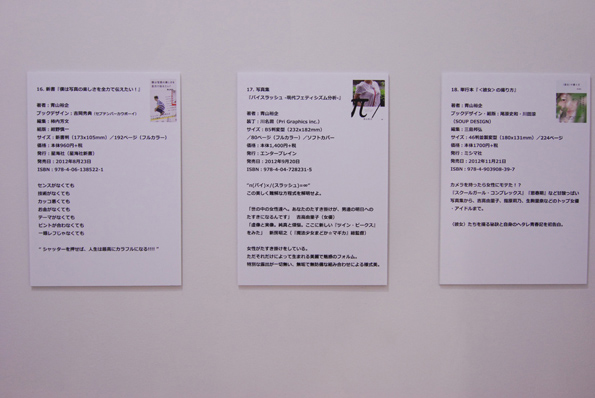 16. 新書『僕は写真の楽しさを全力で伝えたい！』
著者：青山裕企
ブックデザイン：吉岡秀典（セプテンバーカウボーイ）
編集：柿内芳文
紙版：紺野慎一
サイズ：新書判（173x105mm）／192ページ（フルカラー）
価格：本体960円+税
発行：星海社（星海社新書）
発売日：2012年8月23日
ISBN：978-4-06-138522-1
センスがなくても
技術がなくても
カッコ悪くても
お金がなくても
テーマがなくても
ピントが合わなくても
一眼レフじゃなくても
“ シャッターを押せば、人生は最高にカラフルになる!!! ”
17. 写真集
『パイスラッシュ -現代フェティシズム分析-』
著者：青山裕企
装丁：川名潤（Pri Graphics Inc.）
サイズ：B5判変型（232x182mm）
／80ページ（フルカラー）／ソフトカバー
価格：本体1,400円+税
発行：エンターブレイン
発売日：2012年9月20日
ISBN：978-4-04-728231-5
“π(パイ)×/(スラッシュ)=∞”
この美しく難解な方程式を解明せよ。
「世の中の女性達へ。あなたのたすき掛けが、男達の明日への
たすきになるんです」 吉高由里子（女優）
「虚像と実像。純真と煩悩。ここに新しい『ツイン・ピークス』
をみた」 新房昭之（『魔法少女まどか☆マギカ』総監督）
女性がたすき掛けをしている。
ただそれだけによって生まれる美麗で魅惑のフォルム。
特別な露出が一切無い、無垢で無防備な組み合わせによる様式美。
18. 単行本『〈彼女〉の撮り方』
著者：青山裕企
ブックデザイン・紙版：尾原史和・川田涼
（SOUP DESIGN）
編集：三島邦弘
サイズ：46判変型（180x131mm）／224ページ
価格：本体1700円+税
発行：ミシマ社
発売日：2012年11月21日
ISBN：978-4-903908-39-7
カメラを持ったら女性にモテた！？
『スクールガール・コンプレックス』『思春期』など目撃っぽい
写真集から、吉高由里子、指原莉乃、生駒里奈などのトップ女優
・アイドルまで。
〈彼女〉たちを撮る秘訣と自身のヘタレ男春記を初告白。